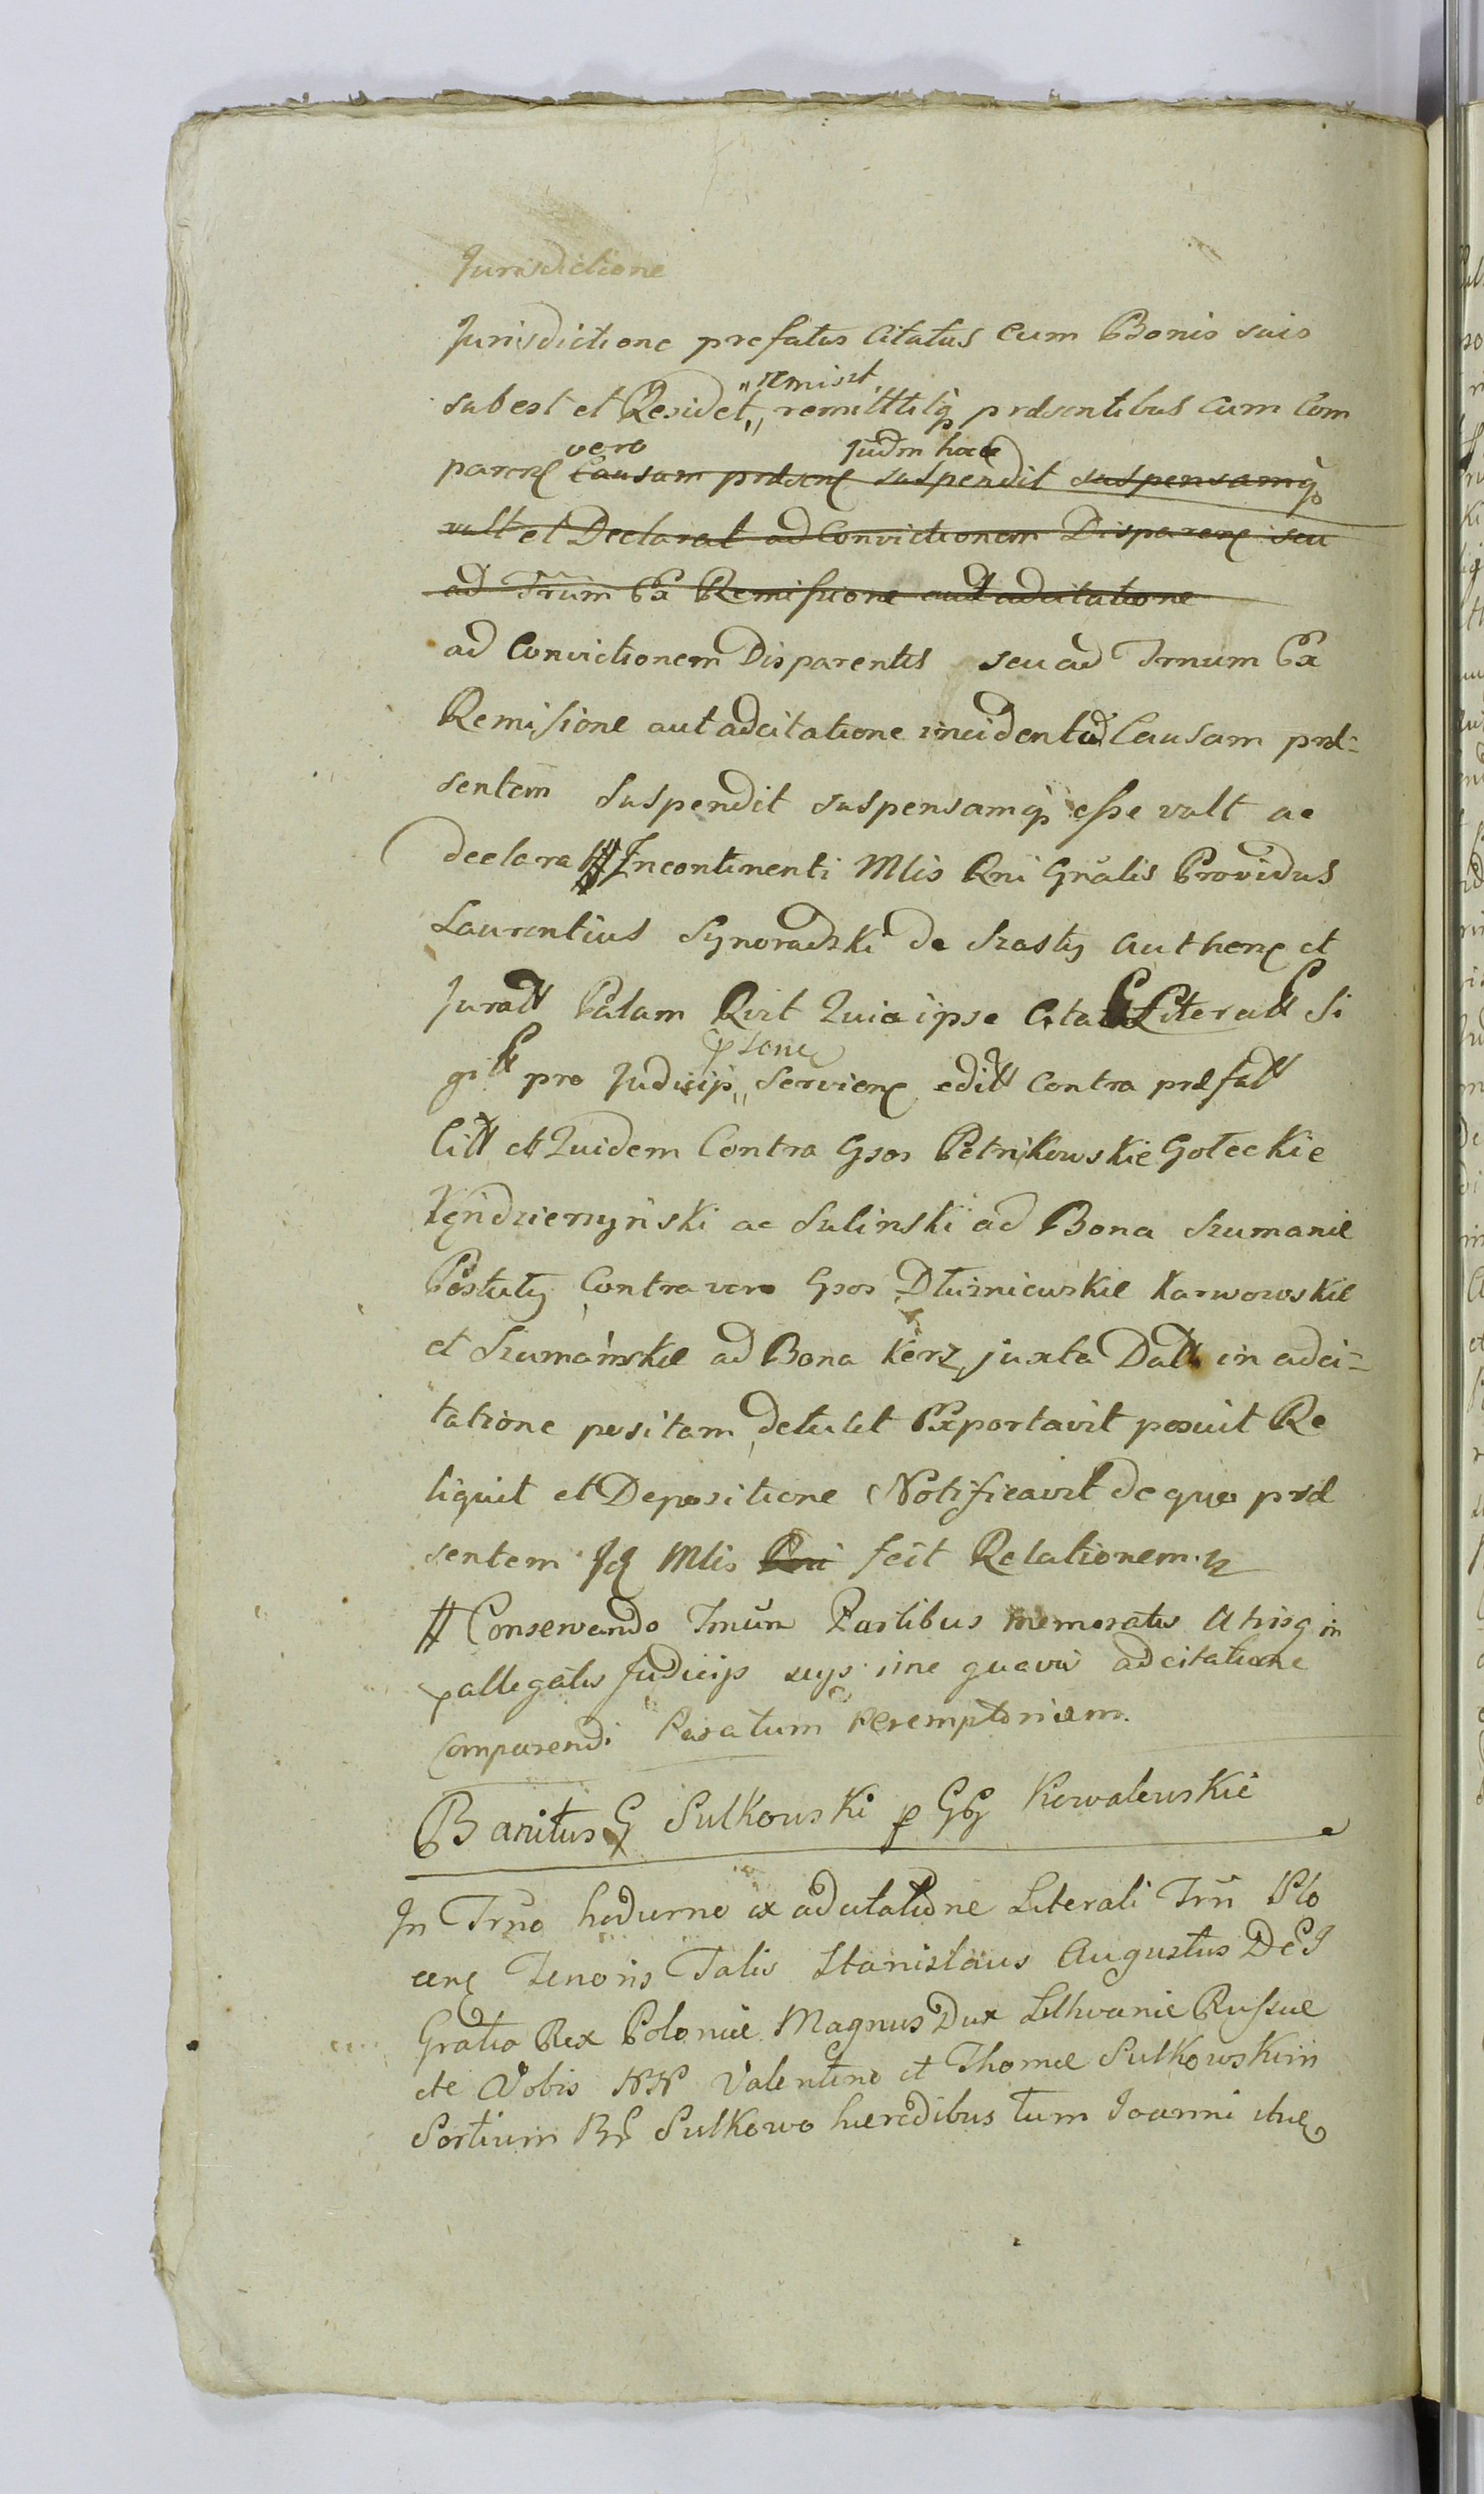 Jurisdictione
Jurisdictione prefatus Citatus cum Bonis suis
subest et Residet,, remittitq prdsentibus cum Com
"remisit
parenſ Causam prdsenſ suspendit suspensamq
vero Judm hocce
vult et Declarat ad Convictionem Disparenſ seu
ad Trum Ex Remissione aut adcitatione
ad Convictionem Disparentis seu ad Trnum Ex
Remisione aut adcitatione incidentia Causam prd=
sentem Suspendit suspensamq esse vult ac
declarat # Incontinenti Mlis Rni Gnalis Providus
Laurentius Synoradzki de Szasty Authenſ et
Juratt Palam Rvit Quia ipse Citatt Literatt Si
gitt pro Judicijs,, Servienſ editt Contra prdfatt
Citt et Quidem Contra Gsos Petrikowskie Goteckie
Kędzierzyński ac Sulinski ad Bona Szumanie
Pestuty Contra vero Gsos Dłużniewskie Karwowskie
et Szumańskie ad Bona Kerz juxta Datt in adci=
tatione positam detulit Exportavit posuit Re
liquit et Depositione Notificavit de quo prd
sentem Id Mlis Rni fecit Relationem
# Conservando Trnum Partibus memoratis Utrisq in
allegatis Judicijs suys sine quavis adcitatione
Comparendi Peratum Peremptorium.
Banitus G Sulkowski p GG Kowalewskie
In Trno hodierno ex adcitatione Literali Trn Plo
cenſ Tenoris Talis Stanislaus Augustus Dei
Gratia Rex Poloniæ Magnus Dux Lithvanie Russiæ
etc Vobis NN Valentino et Thomæ Sulkowskim
Sortium BB Sulkowo heredibus tum Joanni